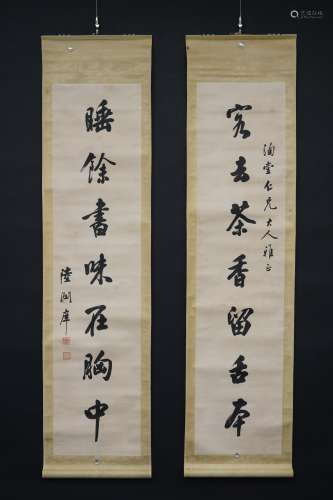 客去茶香留舌本
陶堂仁兄大人雅正
睡餘書味在胸中
陸潤庠